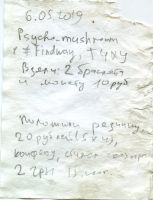 6.05.2019.
Psycho-mushroom
с # Findway, Т4ХУ
Взяли: 2 браслета
и монету 10 руб
Положили резинку,
20 рублей (5 x 4),
конфету,
2 грн